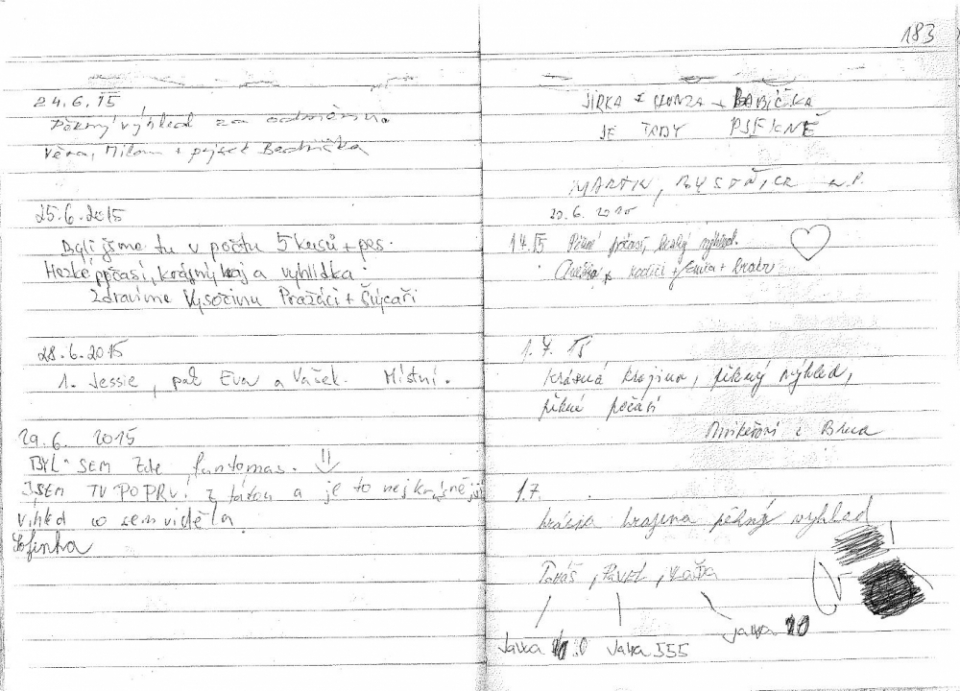 24.6.15
Pěkný výhled za odměnu.
Věra, Milan + pejsek
25.6.2015
Byli jsme tu v počtu 5 kusů + pes.
Hezké počasí, krásný kraj a vyhlídka.
Zdravíme Vysočinu Pražáci + Švýcaři
28.6.2015
1. Jessie, pak Eva a Vašek. Místní.
29.6. 2015
BYL SEM Zde fantomas. !!
JSEM TU POPRVÉ z tátou a je to nejkrásnější
vihled co sem viděla
Žofinka
183
JIRKA z + BABIČKA
JE TADY PSEKNĚ
MARTIN, BYSTŘICE n.P.
29.6. 2015
1.7.15 Pěkné počasí, hezký výhled.
rodiči +
1.7.15
Krásná krajina, pěkný výhled,
pěkné počasí
z Brna
1.7.
krásna krajina pěkný vyhled
Tomáš, PAVEL, KAČA
Javka Javka 555 javka 10